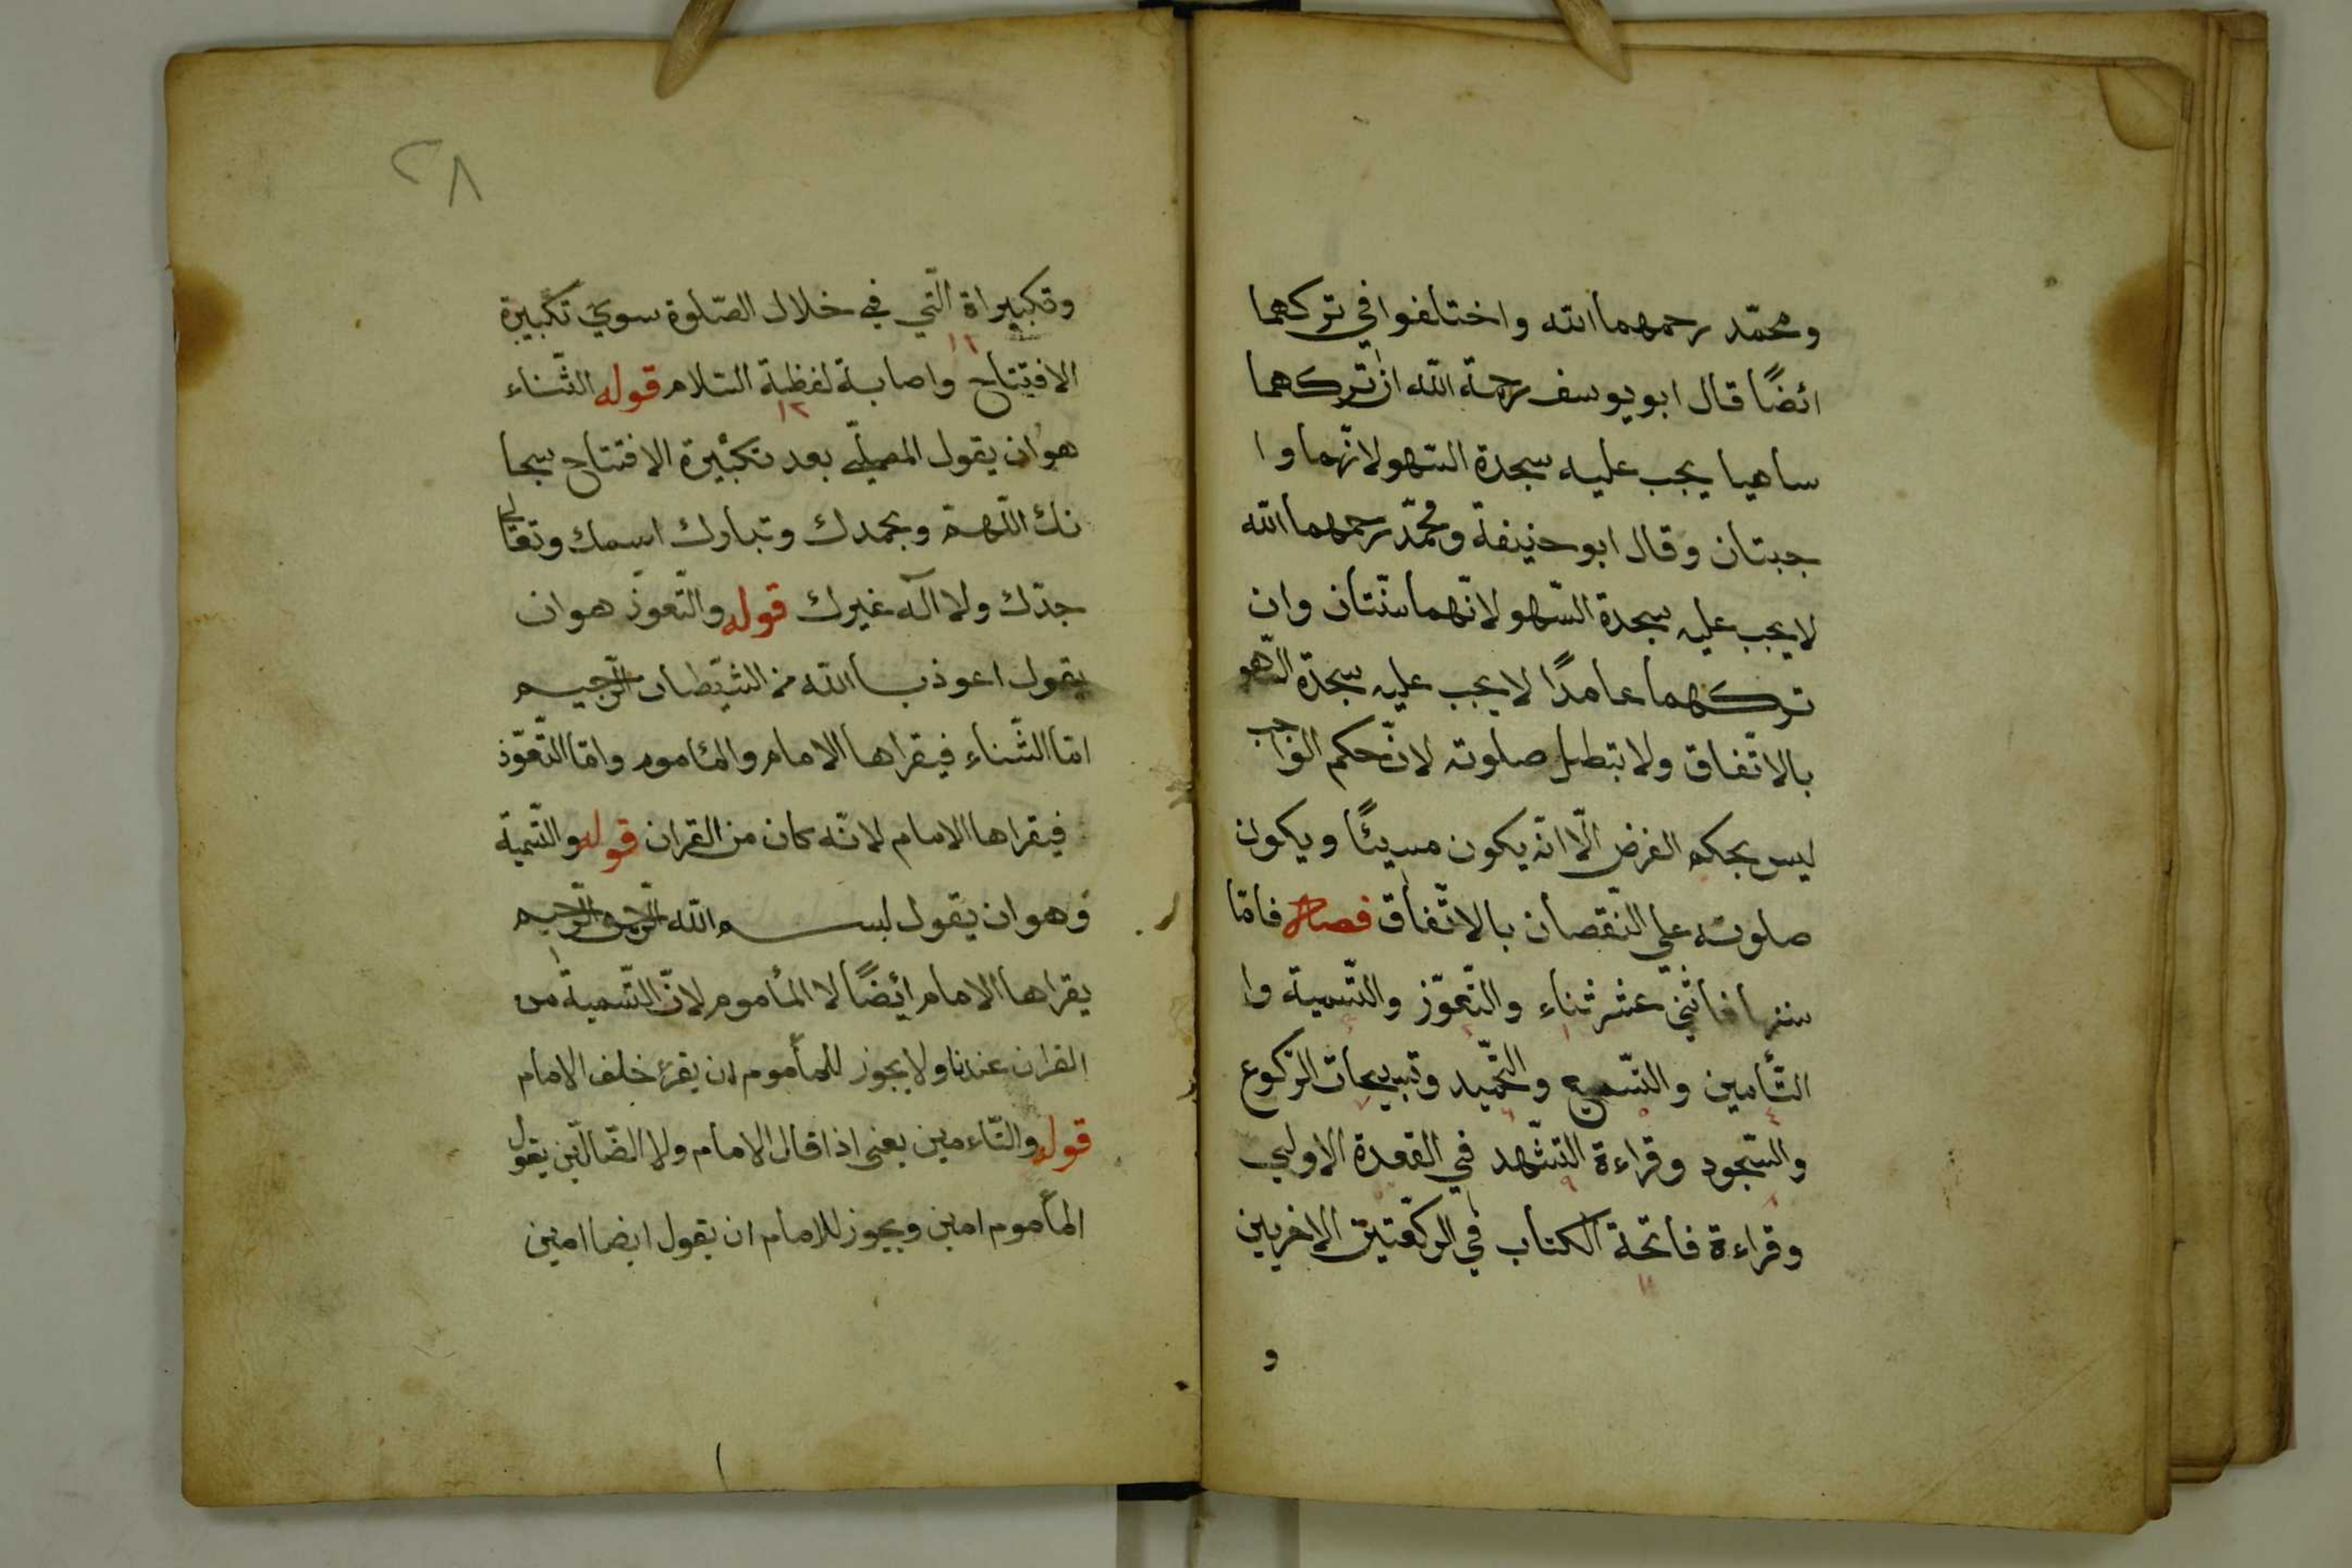 ومحمّد رحمهما الله واختلفوا في تركهما
ائضًا قال ابو يوسف رحمة الله ان تركهما
ساهيا يجب عليه سجدة السّهو لانّهما وا
جبتان وقال ابو حنيفة ومحمّد رحمهما الله
لا يجب عليه سجدة السّهو لانّهما سنّتان وان
تركهما عامدًا لا يجب عليه سجدة السّهو
بالاتّفاق ولا تبطل صلوته لانّ حكم الواجب
ليس بحكم الفرض الّا انّه يكون مسيئًا ويكون
صلوته علي النّقصان بالاتّفاق فصل فامّا
سننها فاثني عشر ثناء والتّعوّز والتّسمية وا
التّأمين والتّسميع والتّحميد وتسبيحات الرّكوع
والسّجود وقراءة التشّهد في القعدة الاولي
وقراءة فاتحة الكتاب في الركعتين الاخريين
و
٢٨
وتكبيراة الّتي في خلال الصّلوة سوي تكبيرة
الافتتاح واصابة لفظة السّلام قوله الثّناء
هو ان يقول المصلّي بعد تكبيرة الافتتاح سبحا
نك اللّهمّ وبحمدك وتبارك اسمك وتعالي
جدّك ولا اله غيرك قوله والتّعوّذ هو ان
يقول اعوذ بالله من الشّيطان الرّجيم
امّا الثّناء فيقراها الامام والمأموم وامّا التّعوّذ
فيقراها الامام لانّه كان من القران قوله والتّسمية
وهو ان يقول بسم الله الرّحمن الرّحيم
يقراها الامام ائضًا لا المأموم لانّ التّسمية من
القران عندنا ولا يجوز للمأموم ان يقرء خلف الامام
قوله والتّاءمين يعني اذا قال الامام ولا الضّالّين يقول
المأموم امين ويجوز للامام ان يقول ايضا امين